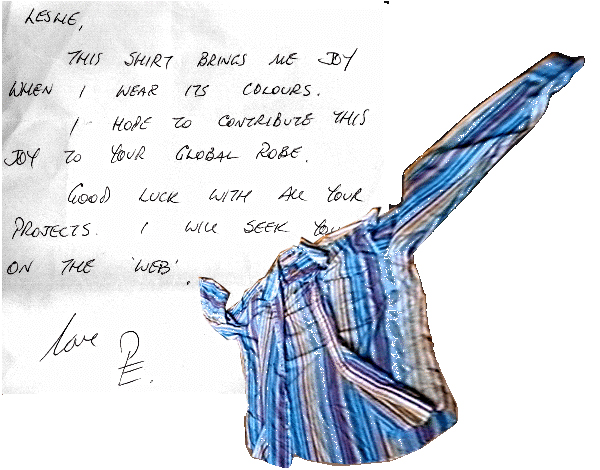 LESLIE,
THIS SHIRT BRINGS ME JOY
WHEN I WEAR ITS COLOURS.
I HOPE TO CONTRIBUTE THIS
JOY TO YOUR GLOBAL ROBE.
GOOD LUCK WITH ALL YOUR
PROJECTS. I WILL SEEK YOU
ON THE 'WEB'.
love
PE.